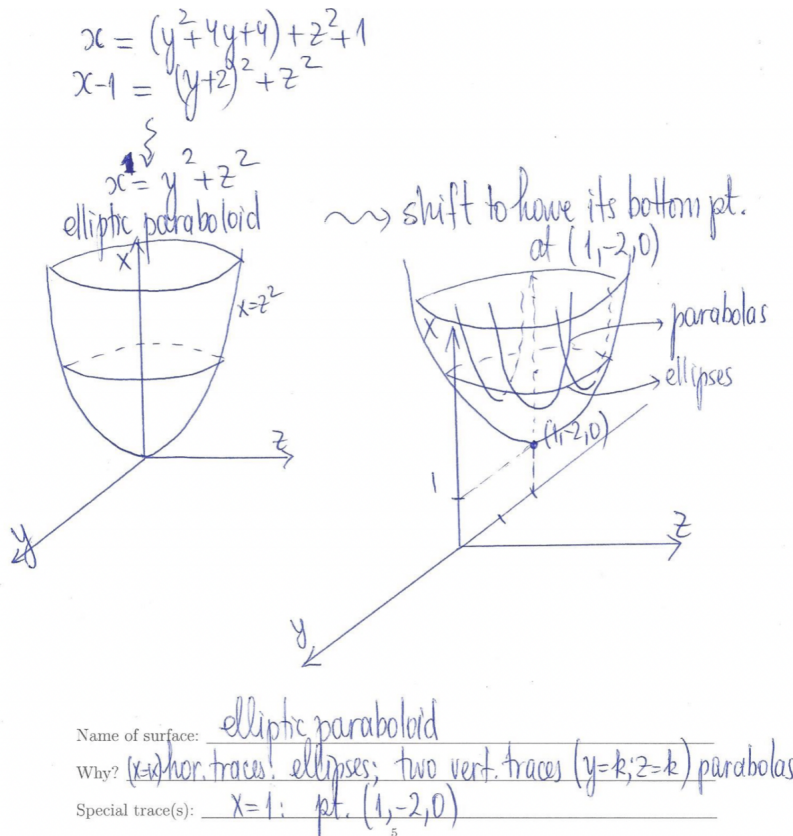 x = (y²+4y+4) + z²+1
x-1 = (y+2)² + z²
x¹ = y² + z²
elliptic paraboloid
shift to have its bottom pt.
at (1,-2,0)
x
x=z²
z
y
x
parabolas
ellipses
(1,-2,0)
1
z
y
Name of surface: elliptic paraboloid
Why? (x=k) hor. traces: ellipses; two vert. traces (y=k; z=k) parabolas
Special trace(s): x=1: pt. (1,-2,0)
5